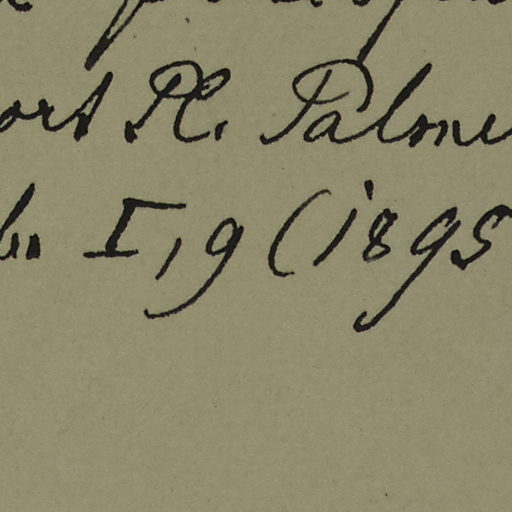 ort Pl. Palme
I, 9 (1895